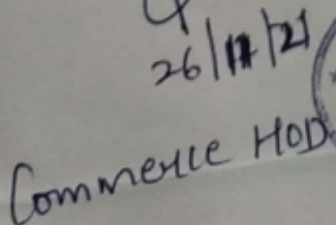 26/11/21
Commerce HOD